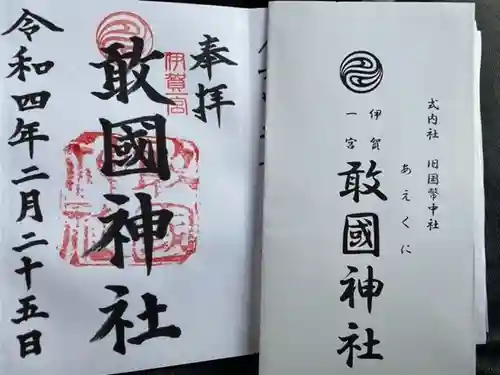 奉拝
伊賀一宮
敢國神社
令和四年二月二十五日
式内社 旧国幣中社
あえくに
伊賀
一宮
敢國神社